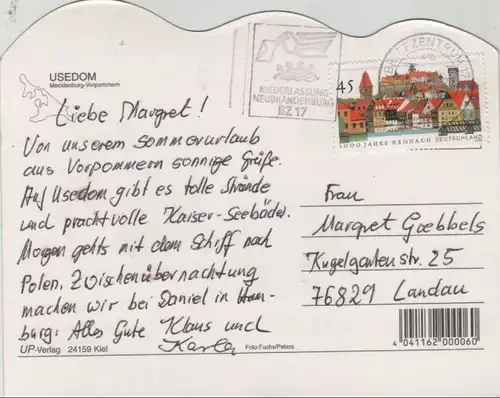 USEDOM
Mecklenburg-Vorpommern
Liebe Margret!
Von unserem Sommerurlaub
aus Vorpommern sonnige Grüße.
Auf Usedom gibt es tolle Strände
und prachtvolle Kaiser-Seebäder.
Morgen gehts mit dem Schiff nach
Polen. Zwischenübernachtung
machen wir bei Daniel in Ham-
burg. Alles Gute Klaus und
Karla
UP-Verlag 24159 Kiel
Foto:Fuchs/Peters
NIEDERLASSUNG
NEUBRANDENBURG
BZ 17
BRIEFZENTRUM
45
1000 JAHRE KRONACH DEUTSCHLAND
Frau
Margret Goebbels
Kugelgartenstr. 25
76829 Landau
4 041162 000060